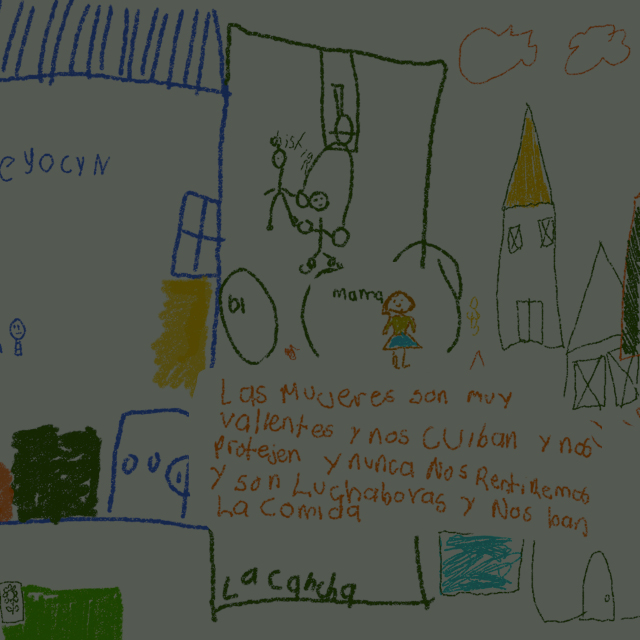 eyocyn
mama
Las mujeres son muy
valientes y nos cuiban y nos
Protejen y nunca Nos Rentiremos
y son Luchaboras y Nos ban
La comida
La cancha